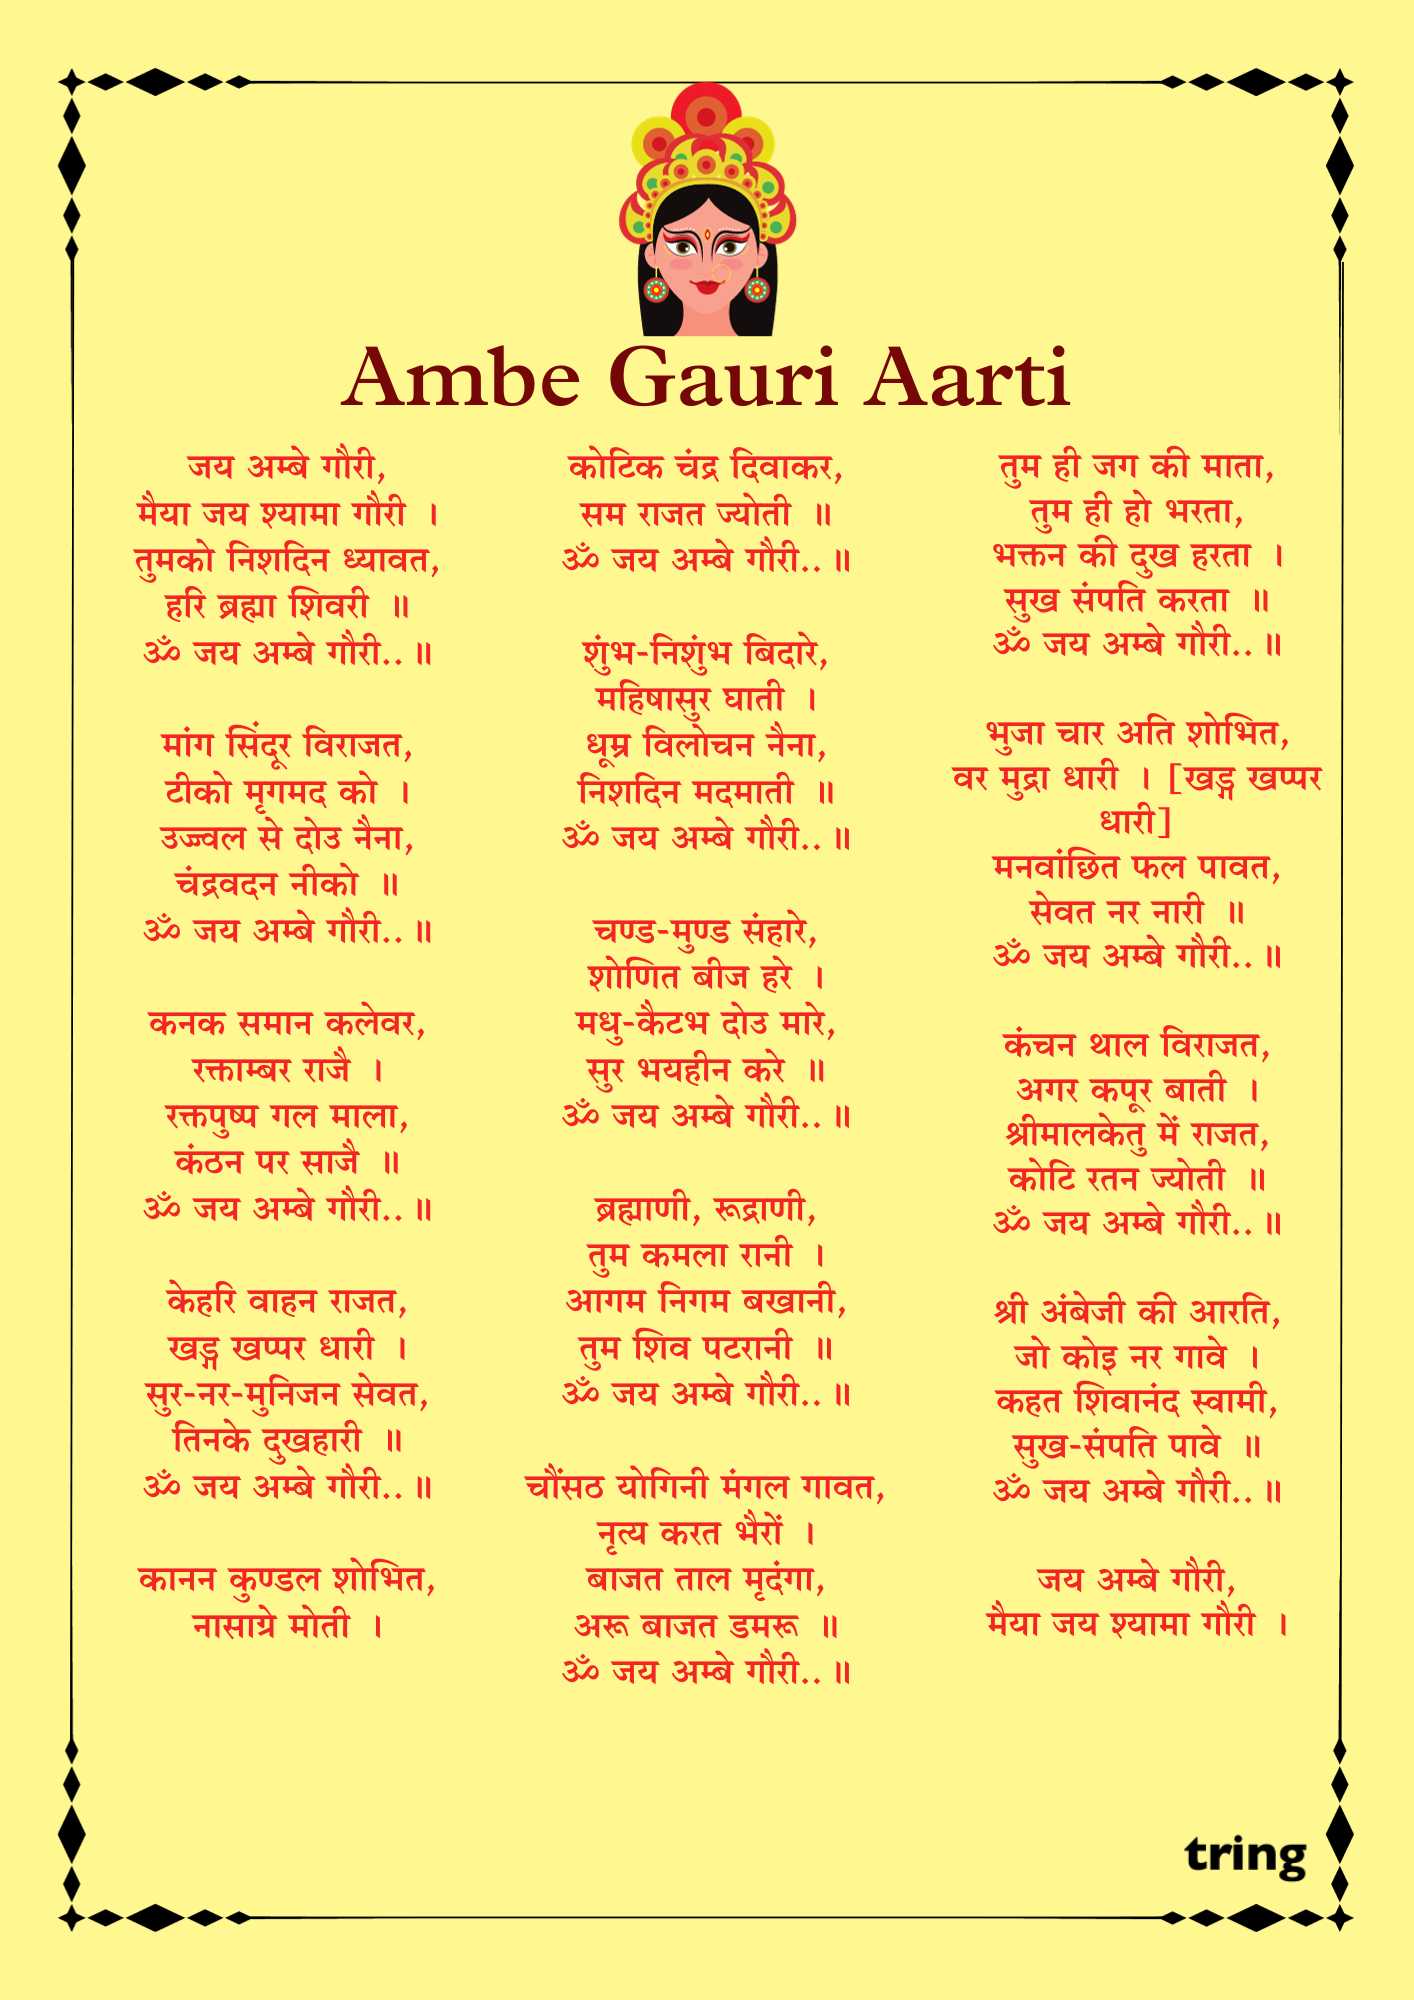 Ambe Gauri Aarti
जय अम्बे गौरी,
मैया जय श्यामा गौरी ।
तुमको निशदिन ध्यावत,
हरि ब्रह्मा शिवरी ॥
ॐ जय अम्बे गौरी..॥
मांग सिंदूर विराजत,
टीको मृगमद को ।
उज्ज्वल से दोउ नैना,
चंद्रवदन नीको ॥
ॐ जय अम्बे गौरी..॥
कनक समान कलेवर,
रक्ताम्बर राजै ।
रक्तपुष्प गल माला,
कंठन पर साजै ॥
ॐ जय अम्बे गौरी..॥
केहरि वाहन राजत,
खड्ग खप्पर धारी ।
सुर-नर-मुनिजन सेवत,
तिनके दुखहारी ॥
ॐ जय अम्बे गौरी..॥
कानन कुण्डल शोभित,
नासाग्रे मोती ।
कोटिक चंद्र दिवाकर,
सम राजत ज्योती ॥
ॐ जय अम्बे गौरी..॥
शुंभ-निशुंभ बिदारे,
महिषासुर घाती ।
धूम्र विलोचन नैना,
निशदिन मदमाती ॥
ॐ जय अम्बे गौरी..॥
चण्ड-मुण्ड संहारे,
शोणित बीज हरे ।
मधु-कैटभ दोउ मारे,
सुर भयहीन करे ॥
ॐ जय अम्बे गौरी..॥
ब्रह्माणी, रूद्राणी,
तुम कमला रानी ।
आगम निगम बखानी,
तुम शिव पटरानी ॥
ॐ जय अम्बे गौरी..॥
चौंसठ योगिनी मंगल गावत,
नृत्य करत भैरों ।
बाजत ताल मृदंगा,
अरू बाजत डमरू ॥
ॐ जय अम्बे गौरी..॥
तुम ही जग की माता,
तुम ही हो भरता,
भक्तन की दुख हरता ।
सुख संपति करता ॥
ॐ जय अम्बे गौरी..॥
भुजा चार अति शोभित,
वर मुद्रा धारी । [खड्ग खप्पर
धारी]
मनवांछित फल पावत,
सेवत नर नारी ॥
ॐ जय अम्बे गौरी..॥
कंचन थाल विराजत,
अगर कपूर बाती ।
श्रीमालकेतु में राजत,
कोटि रतन ज्योती ॥
ॐ जय अम्बे गौरी..॥
श्री अंबेजी की आरति,
जो कोइ नर गावे ।
कहत शिवानंद स्वामी,
सुख-संपति पावे ॥
ॐ जय अम्बे गौरी..॥
जय अम्बे गौरी,
मैया जय श्यामा गौरी ।
tring